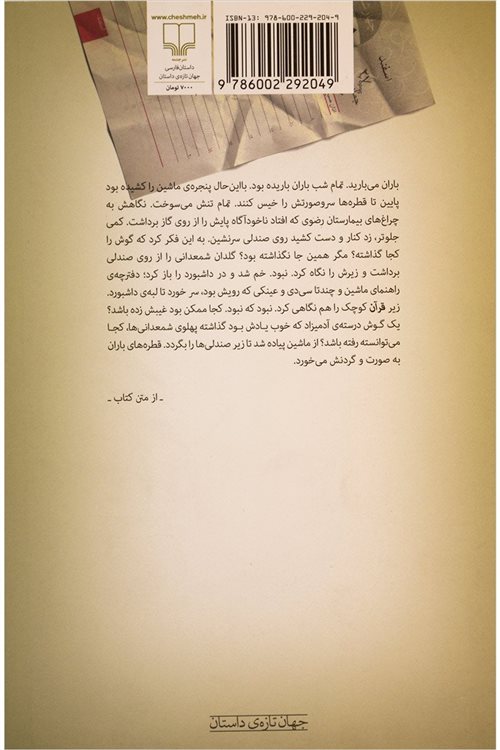 www.cheshmeh.ir
نشرچشمه
داستان فارسی
جهان تازه‌ی داستان
۷۰۰۰ تومان
ISBN-13: 978-600-229-204-9
9 786002 292049
اسفند
باران می‌بارید. تمام شب باران باریده بود. بااین‌حال پنجره‌ی ماشین را کشیده بود
پایین تا قطره‌ها سروصورتش را خیس کنند. تمام تنش می‌سوخت. نگاهش به
چراغ‌های بیمارستان رضوی که افتاد ناخودآگاه پایش را از روی گاز برداشت. کمی
جلوتر، زد کنار و دست کشید روی صندلی سرنشین. به این فکر کرد که گوش را
کجا گذاشته؟ مگر همین جا نگذاشته بود؟ گلدان شمعدانی را از روی صندلی
برداشت و زیرش را نگاه کرد. نبود. خم شد و در داشبورد را باز کرد؛ دفترچه‌ی
راهنمای ماشین و چندتا سی‌دی و عینکی که رویش بود، سر خورد تا لبه‌ی داشبورد.
زیر قرآن کوچک را هم نگاهی کرد. نبود که نبود. کجا ممکن بود غیبش زده باشد؟
یک گوش درسته‌ی آدمیزاد که خوب یادش بود گذاشته پهلوی شمعدانی‌ها، کجا
می‌توانسته رفته باشد؟ از ماشین پیاده شد تا زیر صندلی‌ها را بگردد. قطره‌های باران
به صورت و گردنش می‌خورد.
ـ از متن کتاب ـ
جهان تازه‌ی داستان